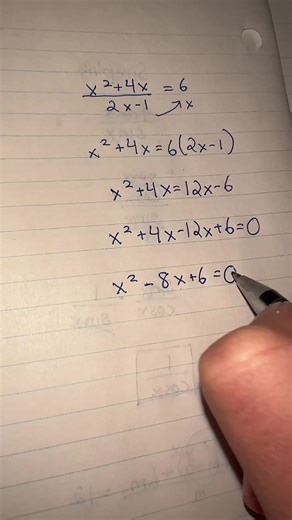 x² + 4x = 6
2x - 1 x
x² + 4x = 6(2x - 1)
x² + 4x = 12x - 6
x² + 4x - 12x + 6 = 0
x² - 8x + 6 = 0